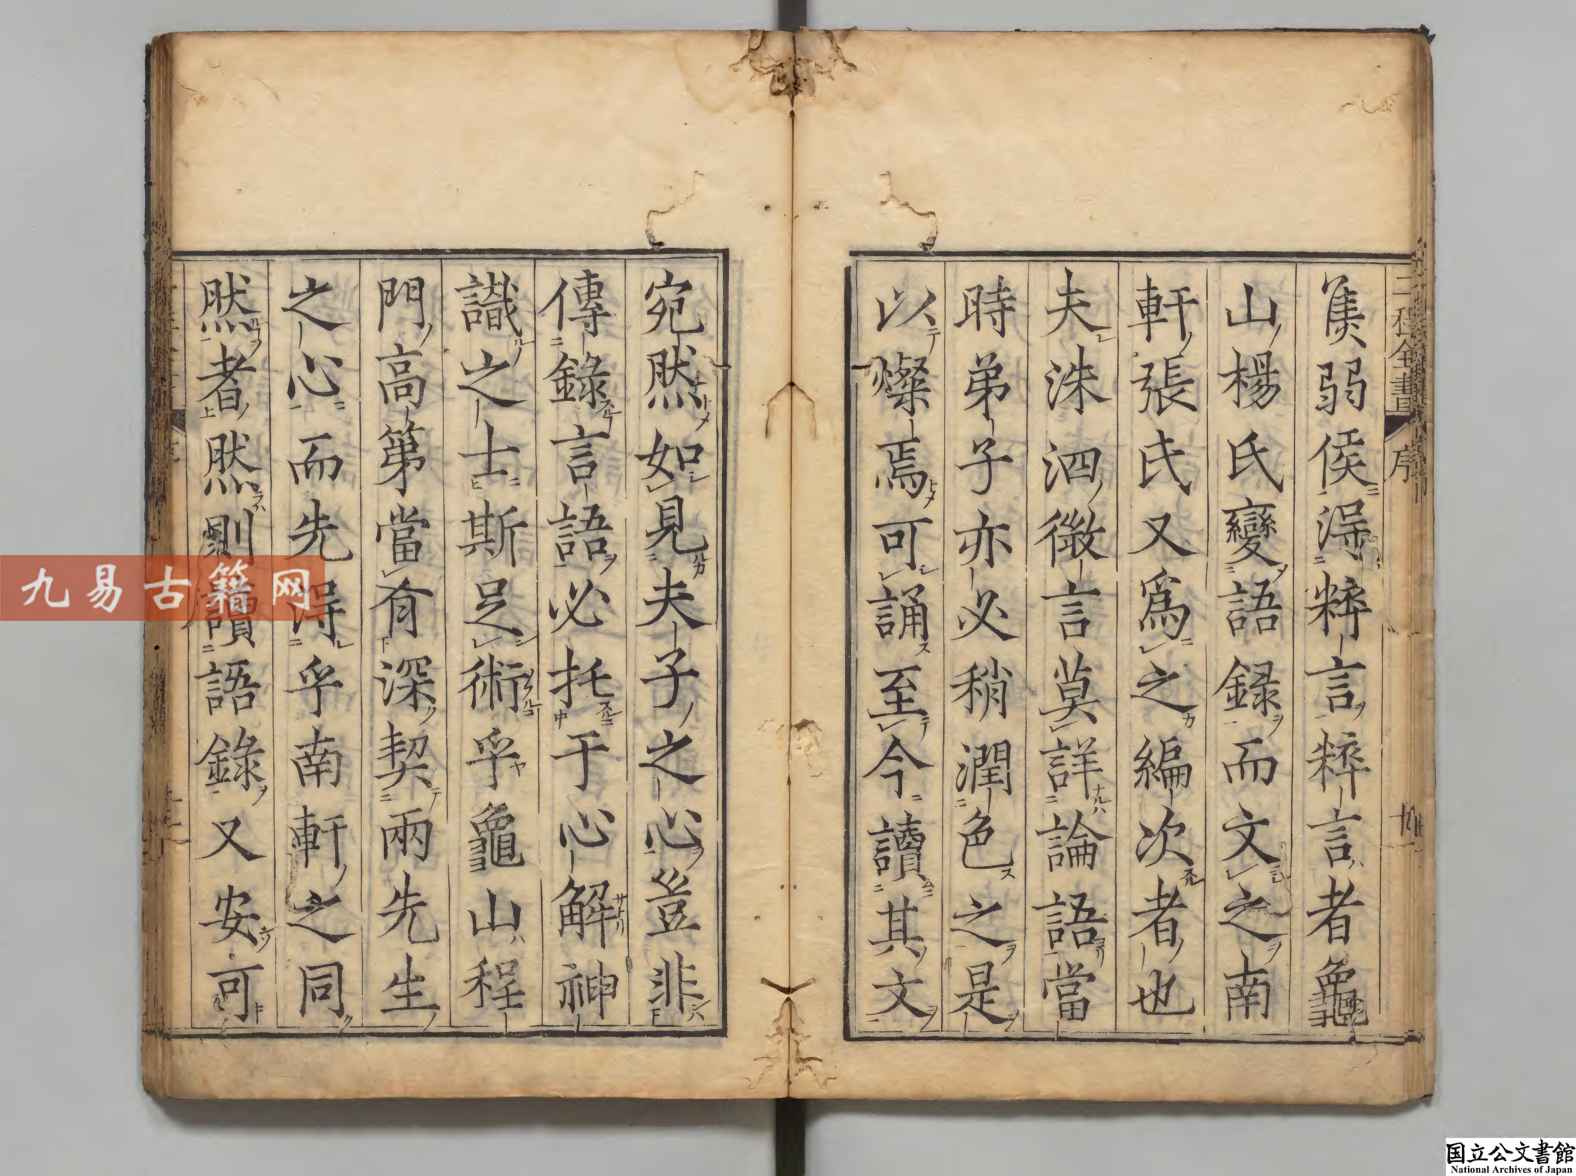 焦弱侯淂粹言粹言者龜
山楊氏變語録而文之南
軒張氏又爲之編次者也
夫洙泗微言莫詳論語當
時弟子亦必稍潤色之是
以燦焉可誦至今讀其文
宛然如見夫子之心豈非
傳錄言語必托于心解神
識之士斯足術乎龜山程
門高第當肻深契兩先生
之心而先淂乎南軒之同
然者然則讀語錄又安可
二程全書
序
九易古籍网
国立公文書館
National Archives of Japan